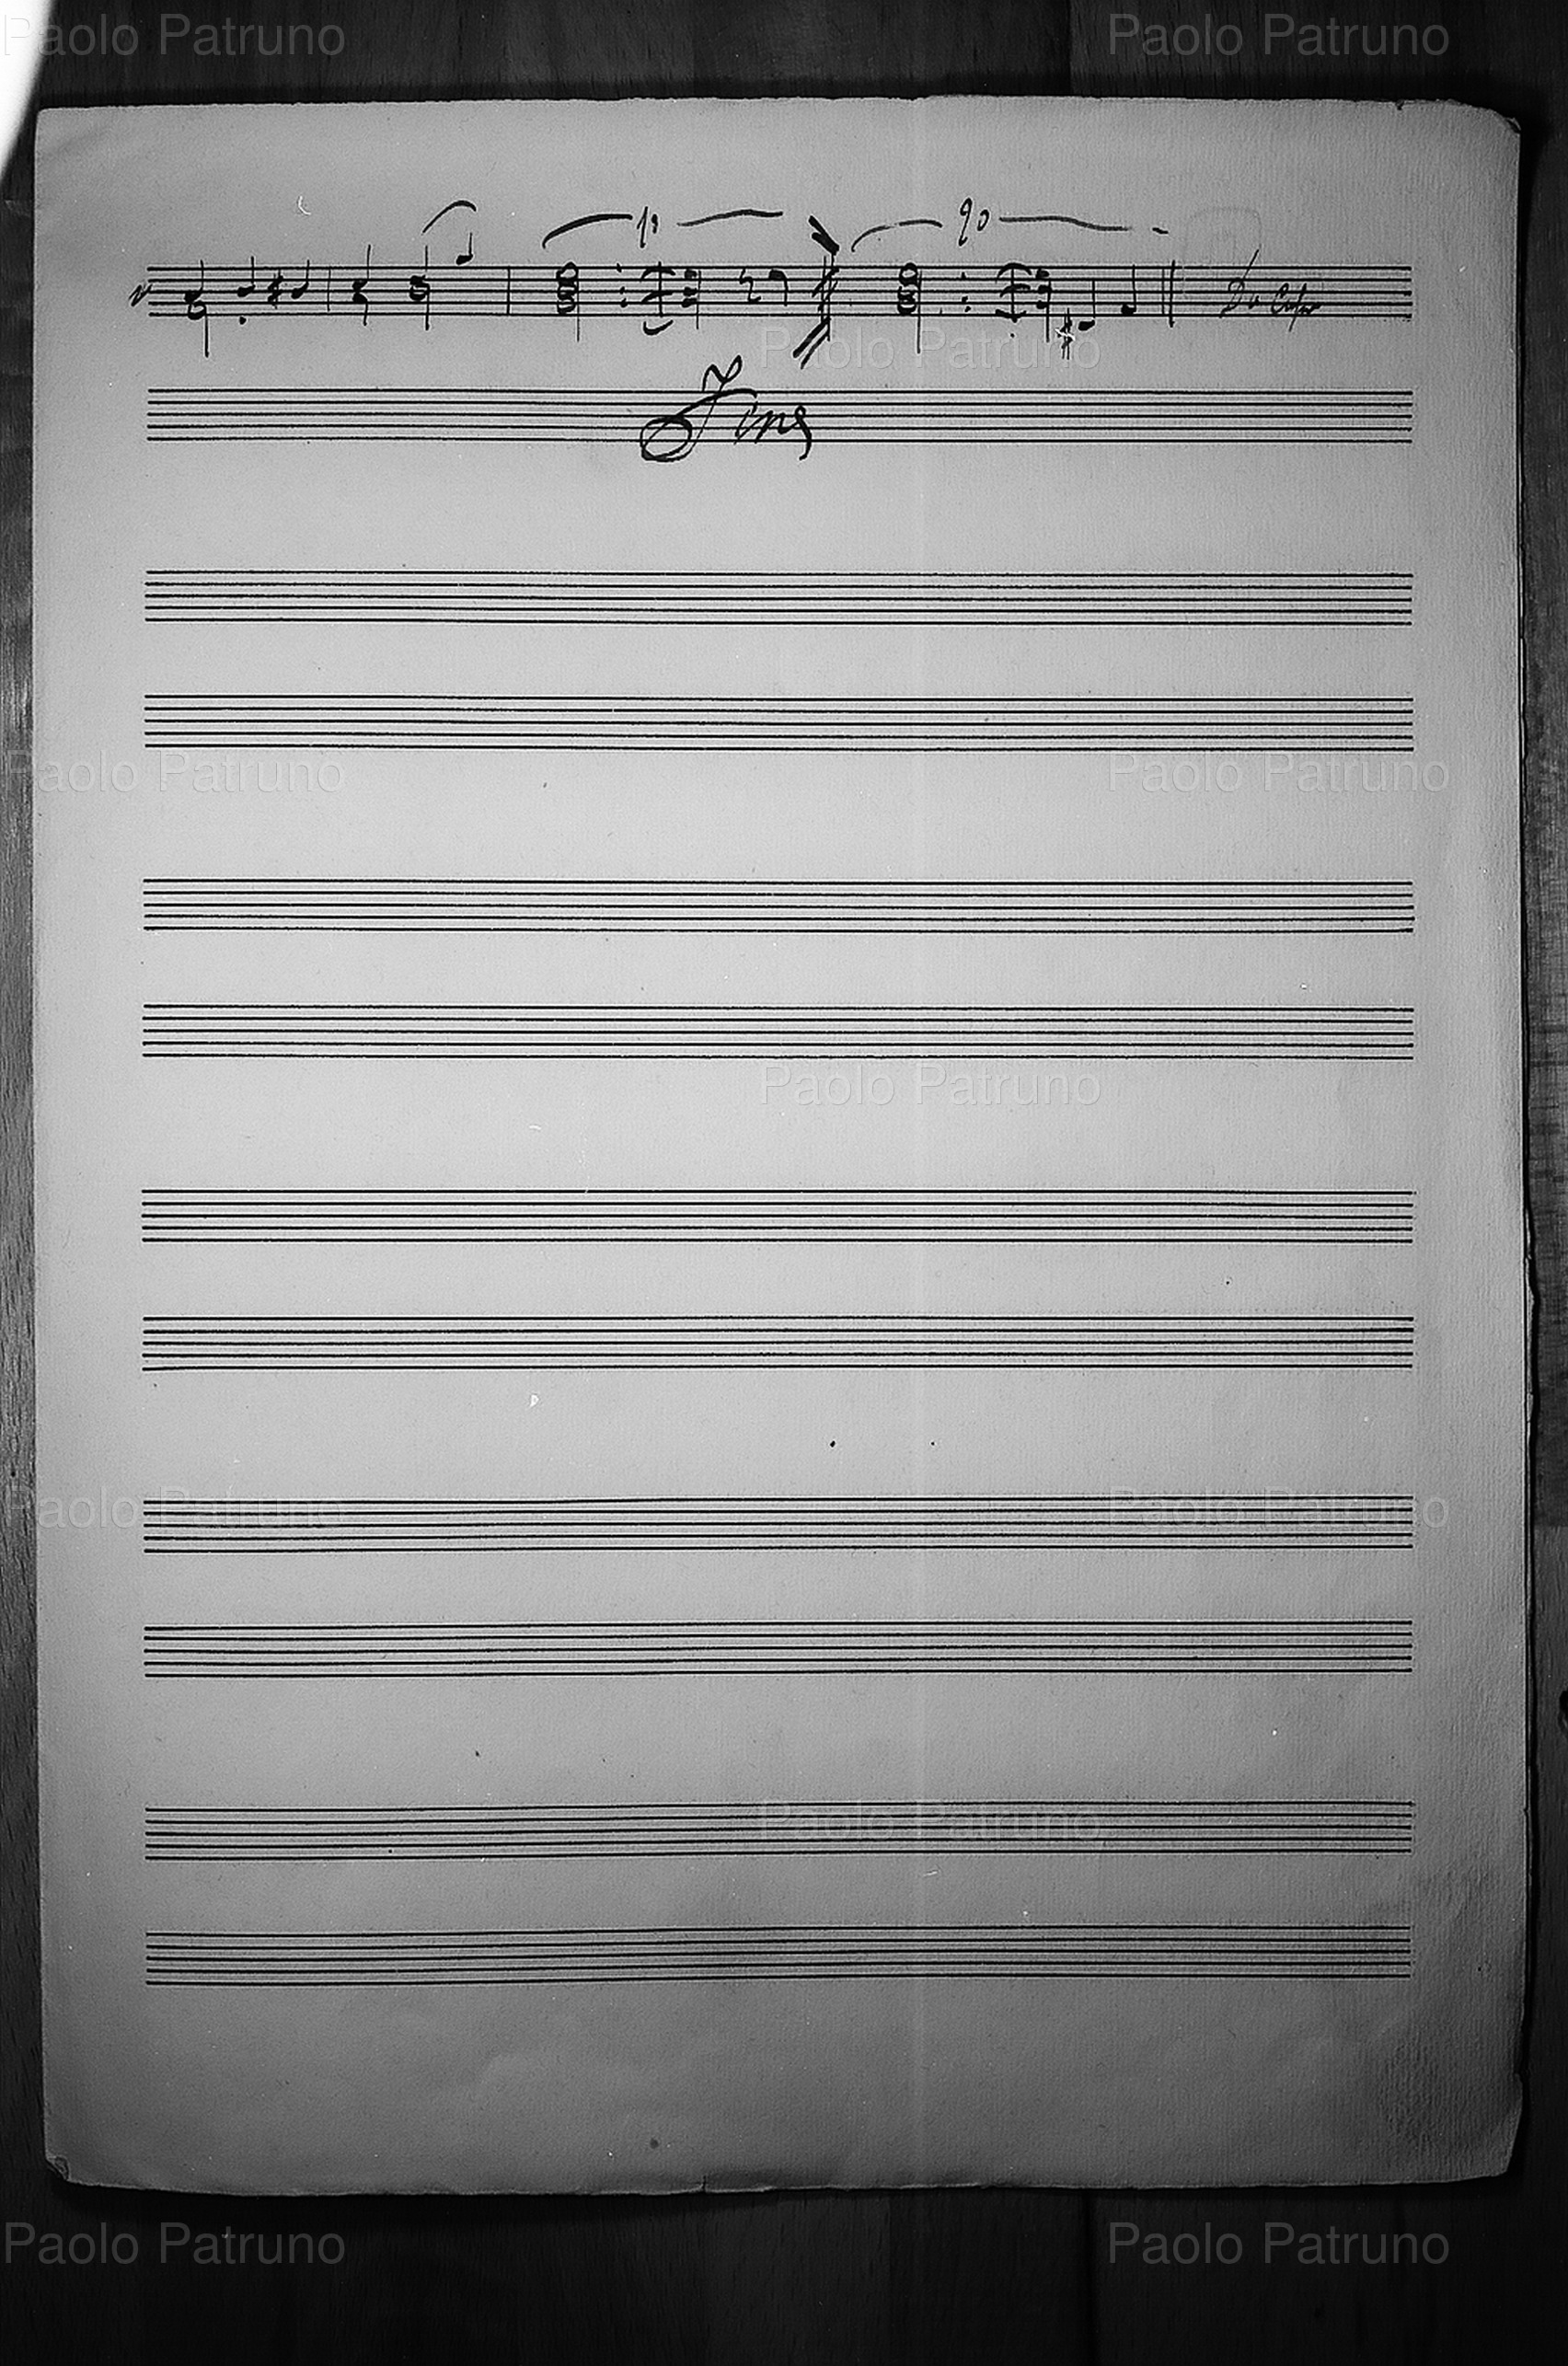 Paolo Patruno Paolo Patruno
1ª 2ª
Da Capo
Paolo Patruno
Fine
Paolo Patruno Paolo Patruno
Paolo Patruno
Paolo Patruno Paolo Patruno
Paolo Patruno
Paolo Patruno Paolo Patruno